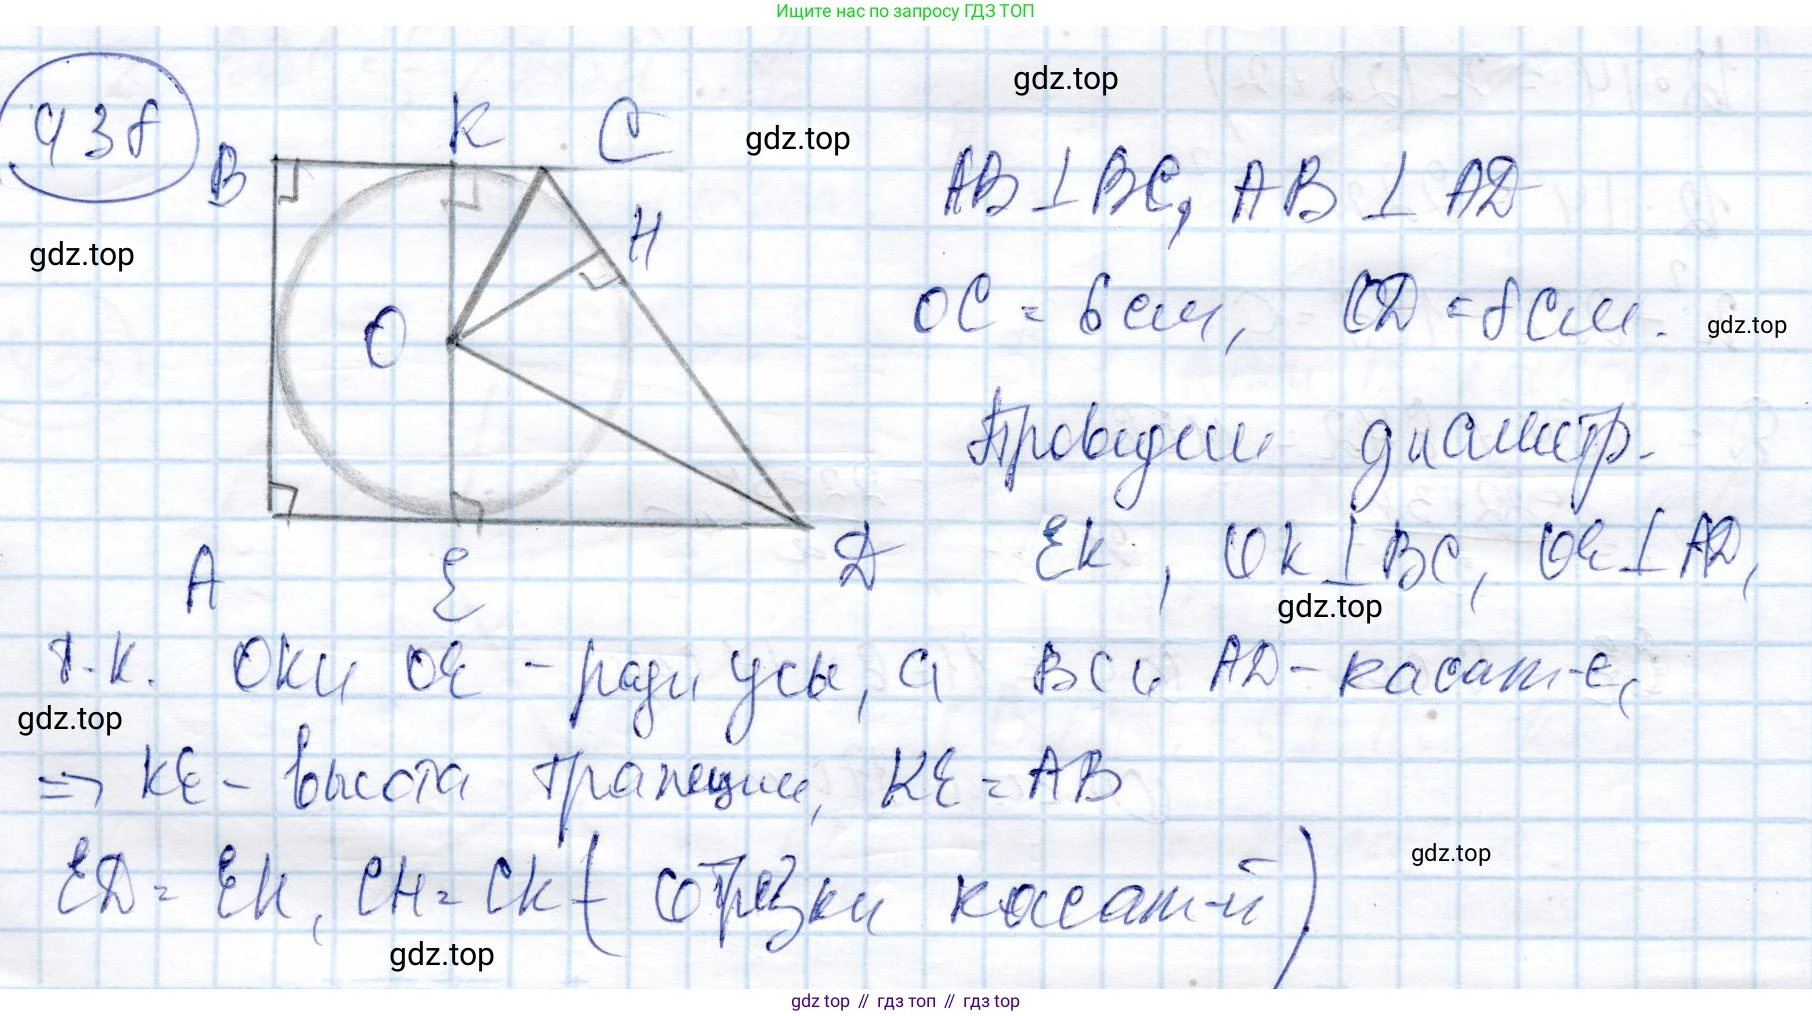 Ищите нас по запросу ГДЗ ТОП
gdz.top
438
K
C
gdz.top
B
AB ⊥ BC, AB ⊥ AD
H
gdz.top
O
OC = 6 см, OD = 8 см.
gdz.top
Проведем диаметр
A
E
D
EK, OK ⊥ BC, OE ⊥ AD,
gdz.top
т.к. OK и OE - радиусы, а BC и AD - касат-е,
gdz.top
=> KE - высота трапеции, KE = AB
gdz.top
ED = EH, CH = CK - (отрезки касат-й)
gdz.top
gdz top // гдз топ // гдз top